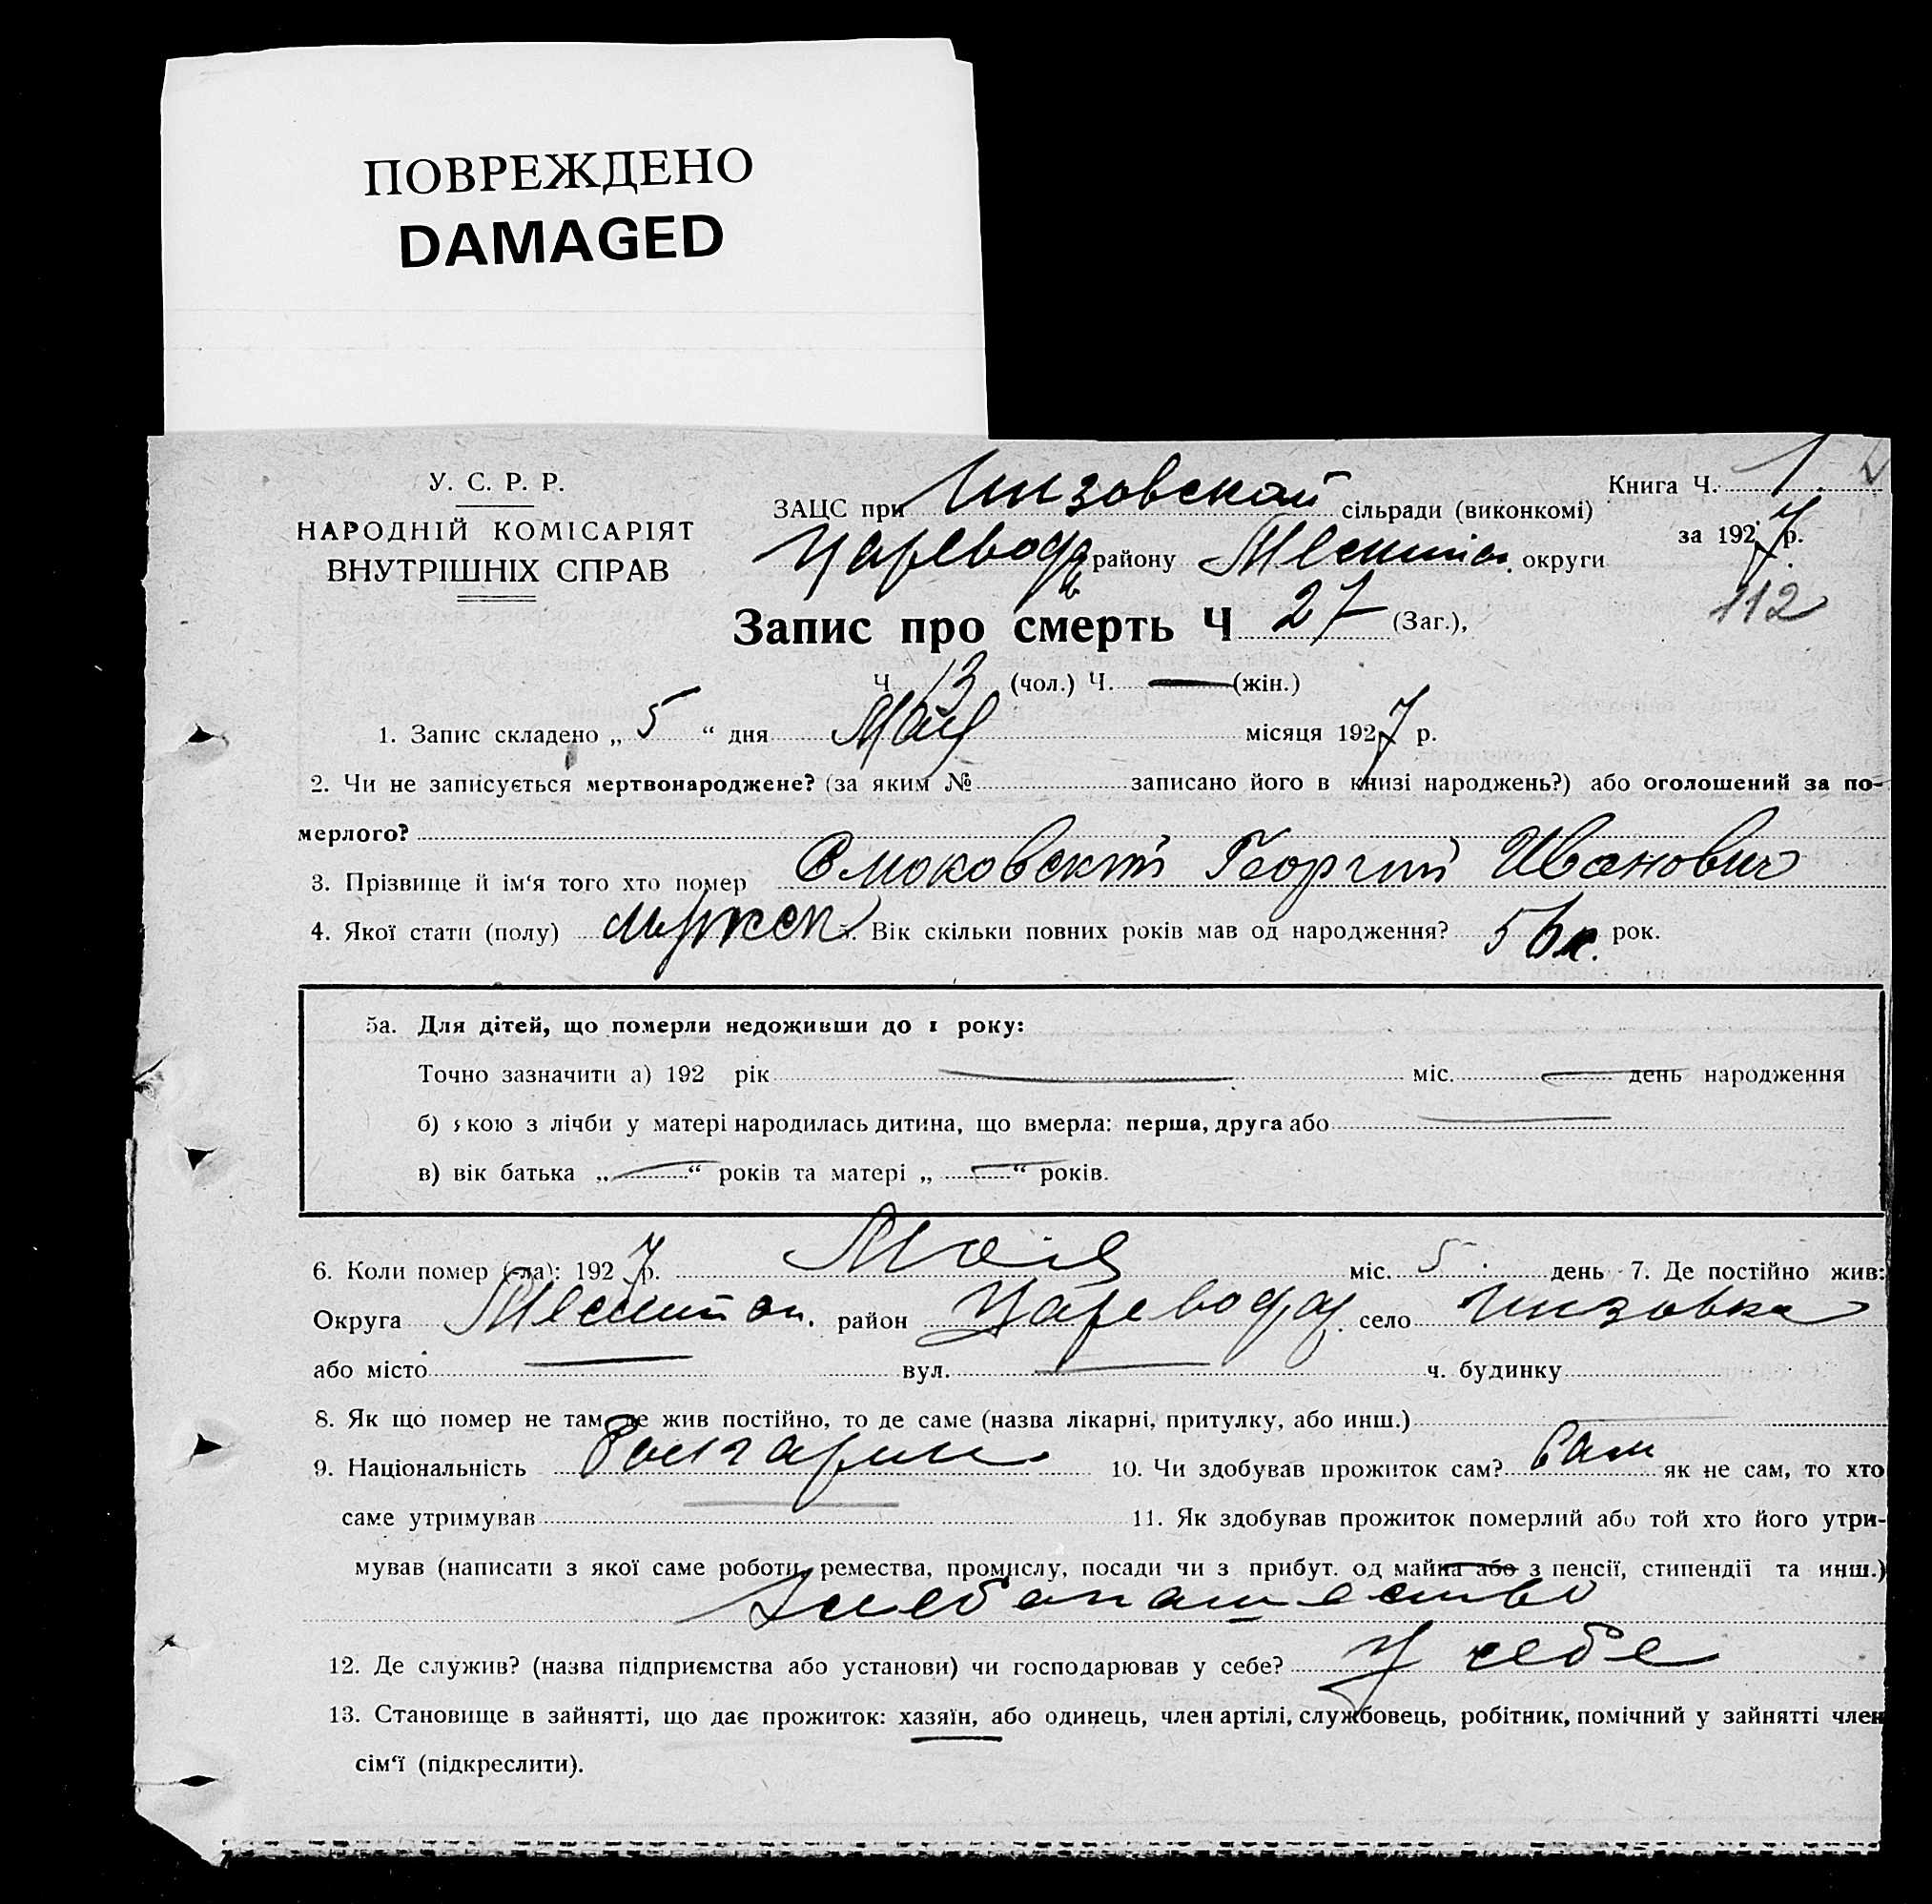 ПОВРЕЖДЕНО
DAMAGED
У. С. Р. Р.
НАРОДНІЙ КОМІСАРІЯТ
ВНУТРІШНІХ СПРАВ
Книга Ч. 1
за 1927 р.
112
ЗАЦС при Инзовской сільради (виконкомі)
району округи
Запис про смерть Ч 27 (Заг.),
Ч. 13 (чол.) Ч. — (жін.)
1. Запис складено „ 5 “ дня Мая місяця 1927 р.
2. Чи не записується мертвонароджене? (за яким № записано його в книзі народжень?) або оголошений за по-
мерлого?
3. Прізвище й ім'я того хто помер Георгий Иванович
4. Якої стати (полу) Вік скільки повних років мав од народження? рок.
5а. Для дітей, що померли недоживши до 1 року:
Точно зазначити а) 192 рік — міс. — день народження
б) якою з лічби у матері народилась дитина, що вмерла: перша, друга або —
в) вік батька „ — “ років та матері „ — “ років.
6. Коли помер (-ла): 1927 р. Мая міс. 5 день 7. Де постійно жив:
Округа район село Инзовка
або місто — вул. — ч. будинку
8. Як що помер не там, де жив постійно, то де саме (назва лікарні, притулку, або инш.) —
9. Національність 10. Чи здобував прожиток сам? Сам як не сам, то хто
саме утримував — 11. Як здобував прожиток померлий або той хто його утри-
мував (написати з якої саме роботи, ремества, промислу, посади чи з прибут. од майна або з пенсії, стипендії та инш.)
Хлебопашество
12. Де служив? (назва підприємства або установи) чи господарював у себе? У себе
13. Становище в зайнятті, що дає прожиток: хазяїн, або одинець, член артілі, службовець, робітник, помічний у зайнятті член
сім'ї (підкреслити).